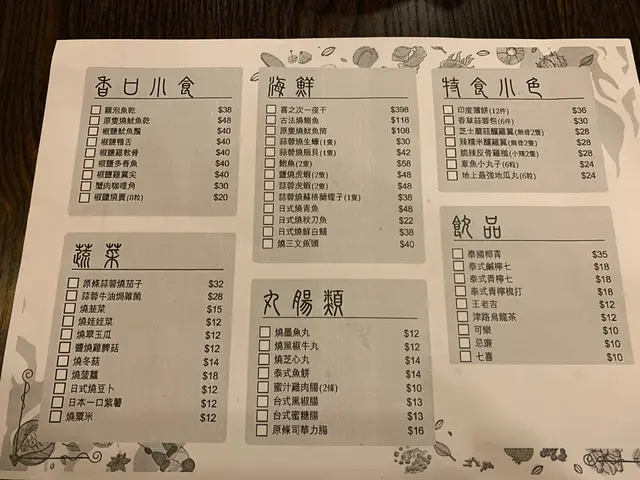 香口小食
雞泡魚乾 $38
原隻燒魷魚乾 $48
椒鹽魷魚鬚 $40
椒鹽鴨舌 $40
椒鹽雞軟骨 $40
椒鹽多春魚 $40
椒鹽雞翼尖 $40
蟹肉咖哩角 $30
椒鹽燒賣(8粒) $20
蔬菜
原條蒜蓉燒茄子 $32
蒜蓉牛油焗雜菌 $28
燒韮菜 $15
燒娃娃菜 $12
燒翠玉瓜 $12
醬燒雞脾菇 $12
燒冬菇 $14
燒菠蘿 $18
日式燒豆卜 $12
日本一口紫薯 $12
燒粟米 $12
海鮮
喜之次一夜干 $398
古法燒鯛魚 $118
原隻燒魷魚筒 $108
蒜蓉燒生蠔(1隻) $30
蒜蓉燒扇貝(1隻) $42
鮑魚(2隻) $58
鹽燒虎蝦(2隻) $48
蒜蓉虎蝦(2隻) $48
蒜蓉燒蘇格蘭蟶子(1隻) $38
日式燒青魚 $48
日式燒秋刀魚 $22
日式燒鮮白鱔 $38
燒三文魚頭 $40
丸腸類
燒墨魚丸 $12
燒黑椒牛丸 $12
燒芝心丸 $14
泰式魚餅 $14
蜜汁雞肉腸(2條) $10
台式黑椒腸 $13
台式蜜糖腸 $13
原條司華力腸 $16
特食小色
印度薄餅(12件) $36
香草蒜蓉包(6件) $30
芝士蘑菇釀雞翼(無骨2隻) $28
辣糯米釀雞翼(無骨2隻) $28
脆辣反骨雞槌(小辣2隻) $28
章魚小丸子(6粒) $24
地上最強地瓜丸(6粒) $24
飲品
泰國椰青 $35
泰式鹹檸七 $18
泰式青檸七 $18
泰式青檸梳打 $18
王老吉 $12
津路烏龍茶 $12
可樂 $10
忌廉 $10
七喜 $10